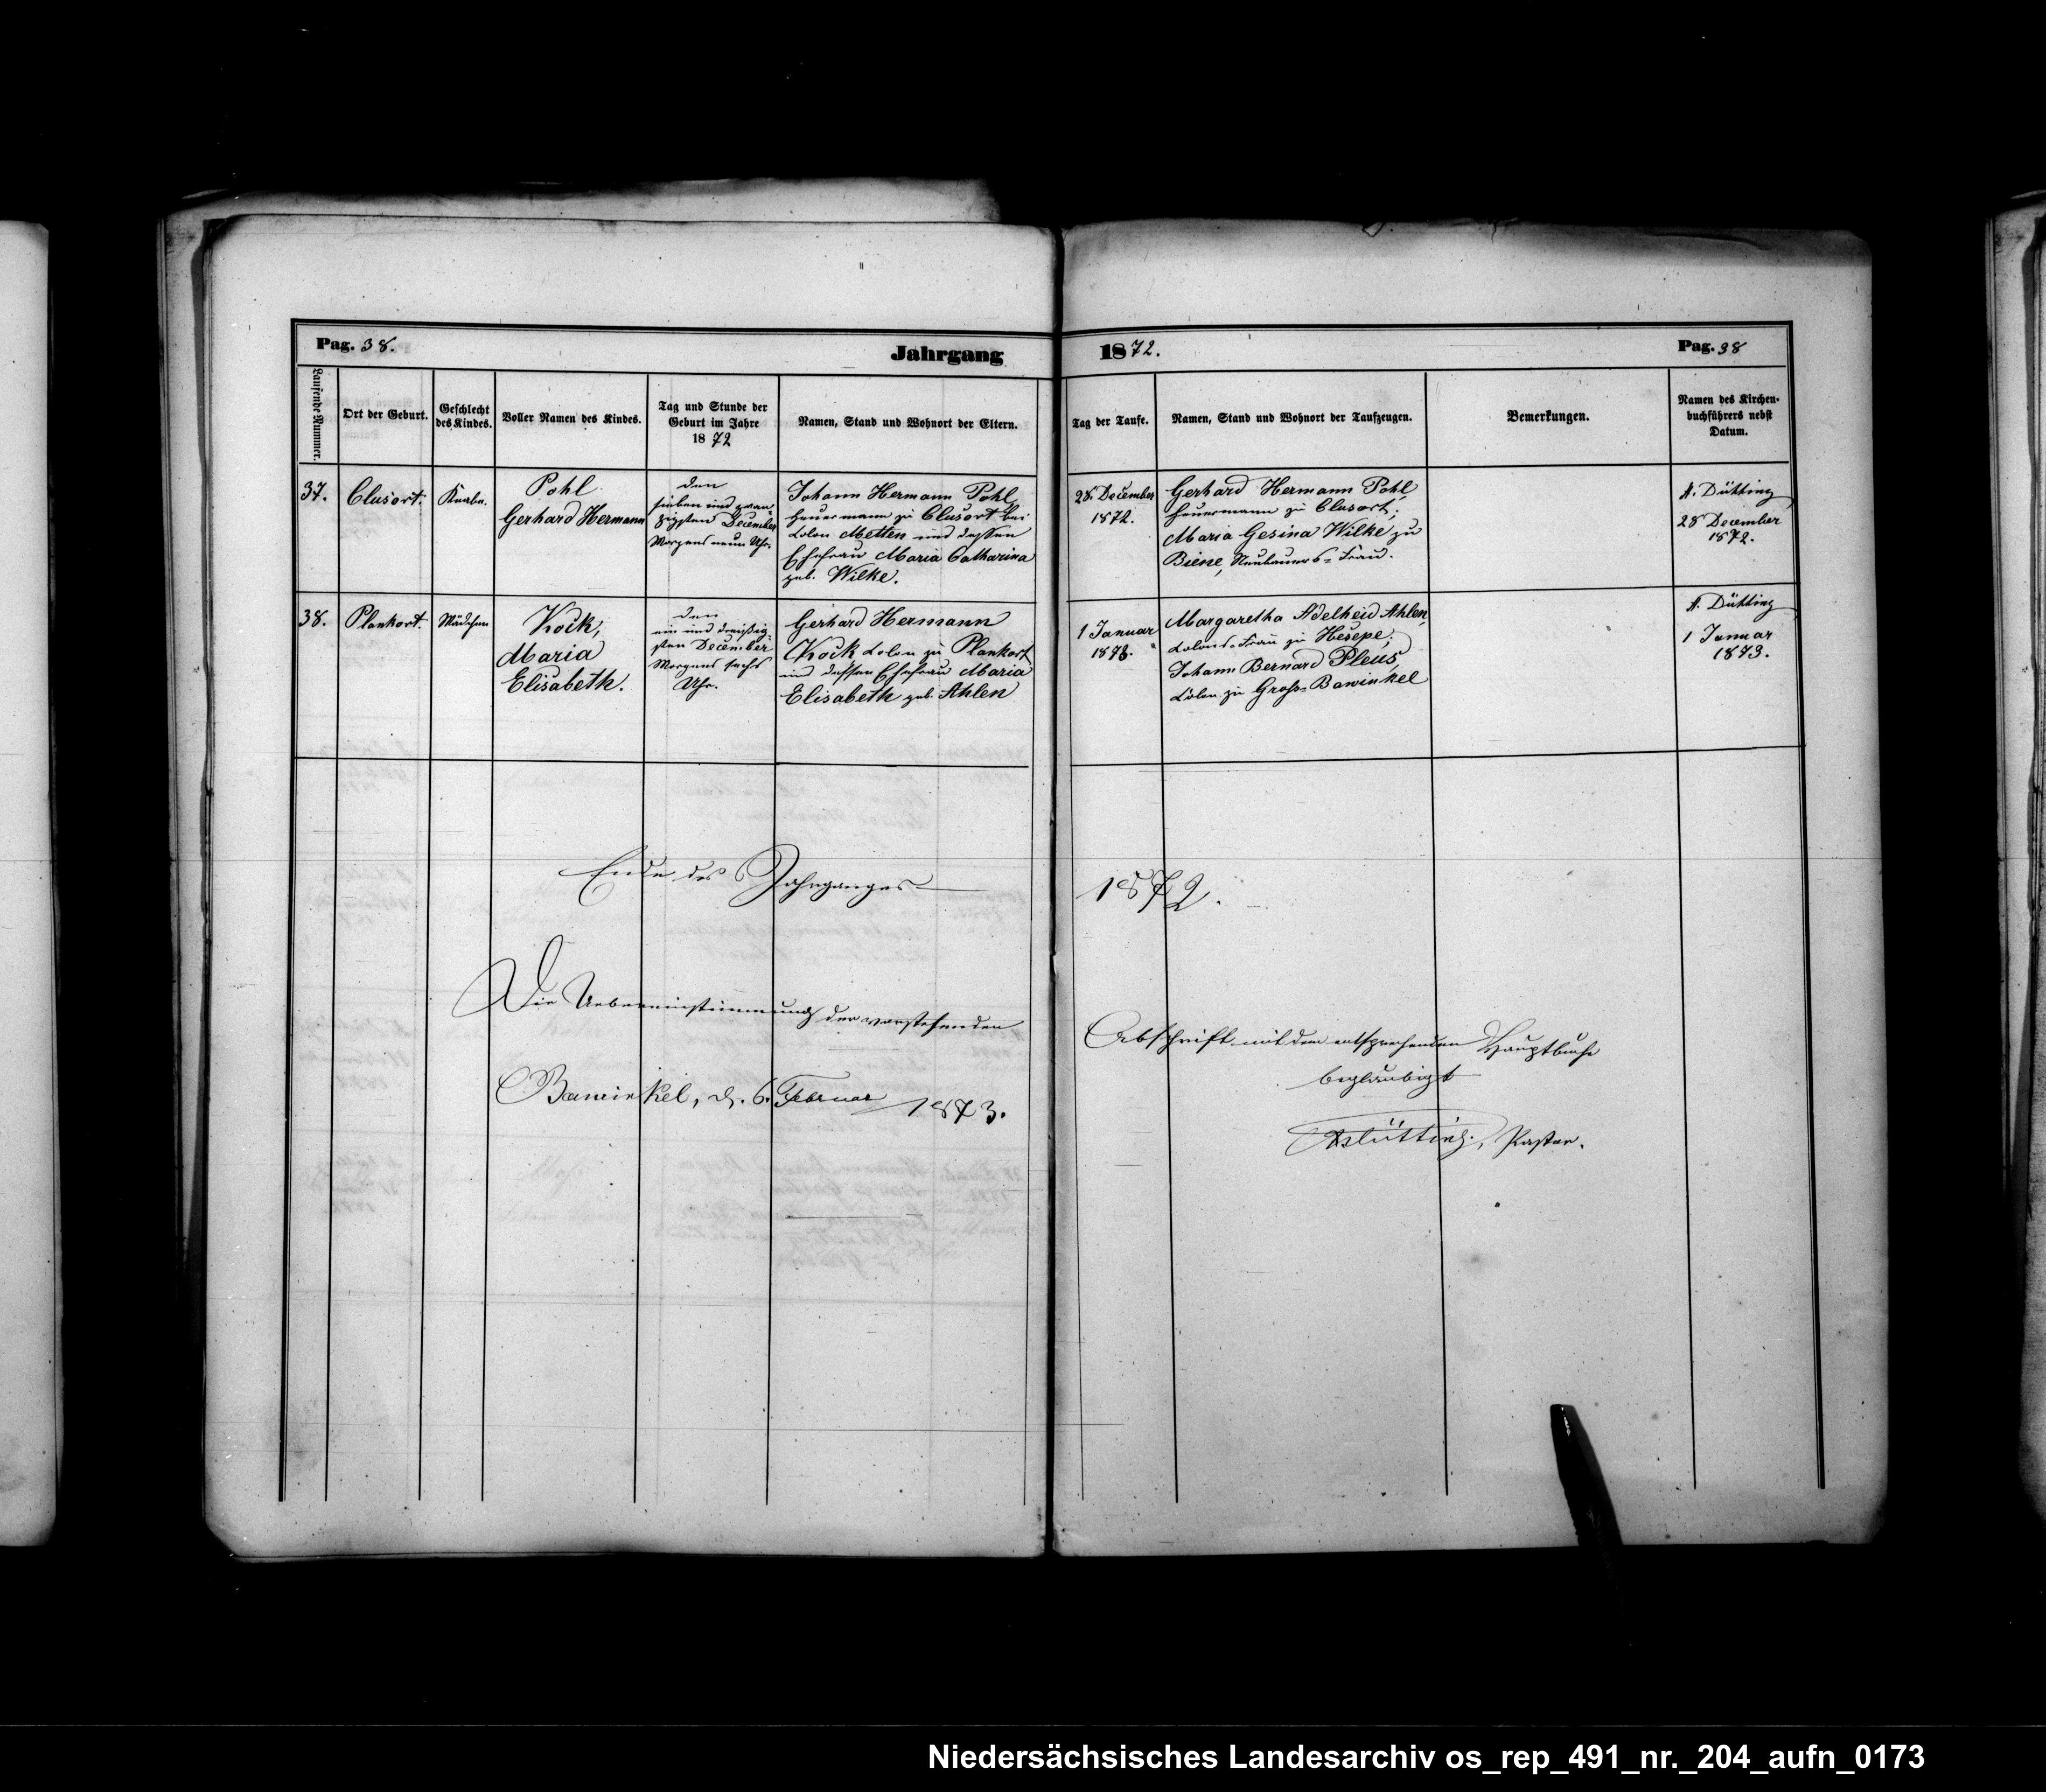 Pag. 38.
Jahrgang 1872.
Pag. 38
Laufende Nummer.
Ort der Geburt.
Geschlecht
des Kindes.
Voller Namen des Kindes.
Tag und Stunde der
Geburt im Jahre
1872
Namen, Stand und Wohnort der Eltern.
Tag der Taufe.
Namen, Stand und Wohnort der Taufzeugen.
Bemerkungen.
Namen des Kirchen-
buchführers nebst
Datum.
37.
Clusort.
Knabe.
Pohl
Gerhard Hermann
den
sieben und zwan-
zigsten December
Morgens neun Uhr.
Johann Hermann Pohl,
Heuermann zu Clusort bei
Colon Metten und dessen
Ehefrau Maria Catharina
geb. Wilke.
28 December
1872.
Gerhard Hermann Pohl,
Heuermann zu Clusort;
Maria Gesina Wilke zu
Biene, Neubauers-Frau.
A. Dütting
28 December
1872.
38.
Plankort.
Mädchen
Kock,
Maria
Elisabeth.
den
ein und dreißig-
sten December
Morgens sechs
Uhr.
Gerhard Hermann
Kock Colon zu Plankort
und dessen Ehefrau Maria
Elisabeth geb. Ahlen
1 Januar
1873.
Margaretha Adelheid Ahlen,
Colons-Frau zu Hesepe;
Johann Bernard Pleus,
Colon zu Gross-Bawinkel
A. Dütting
1 Januar
1873.
Ende des Jahrganges 1872.
Die Uebereinstimmung der vorstehenden
Abschrift mit dem entsprechenden Hauptbuche
beglaubigt
Bawinkel, d. 6. Februar 1873.
A Dütting, Pastor.
Niedersächsisches Landesarchiv os_rep_491_nr._204_aufn_0173